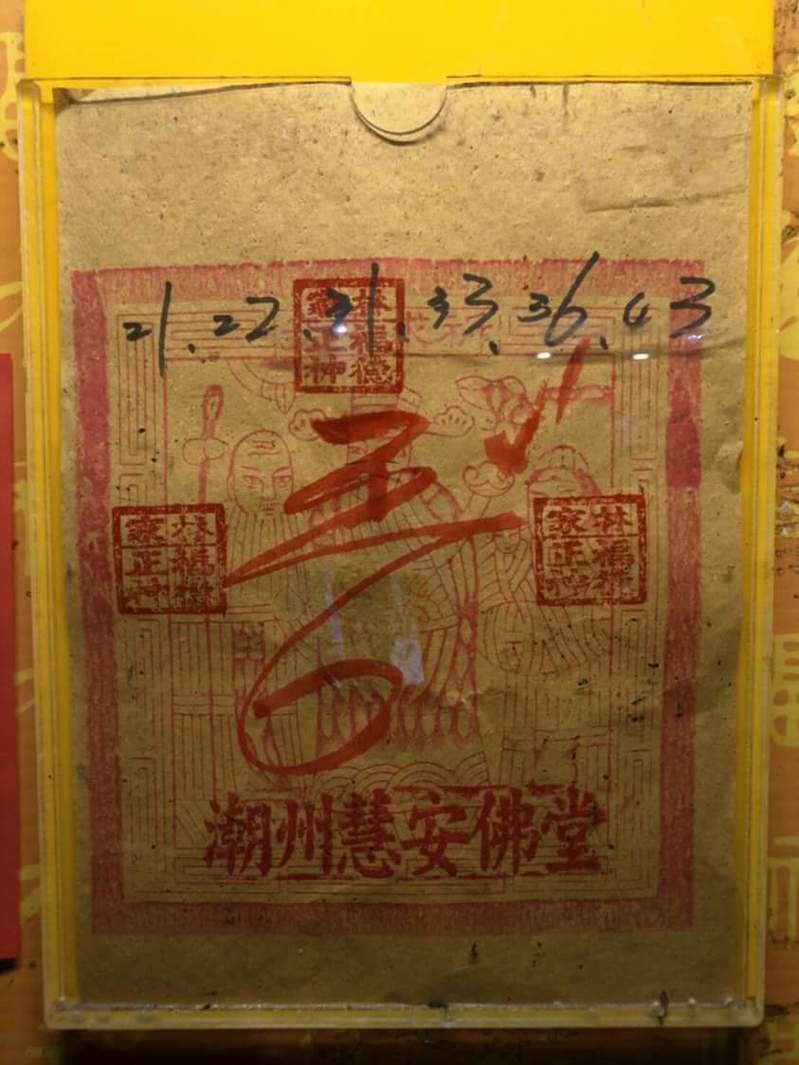 21.22.31.33.36.43
林家福德正神
林家福德正神
林家福德正神
6
潮州慧安佛堂